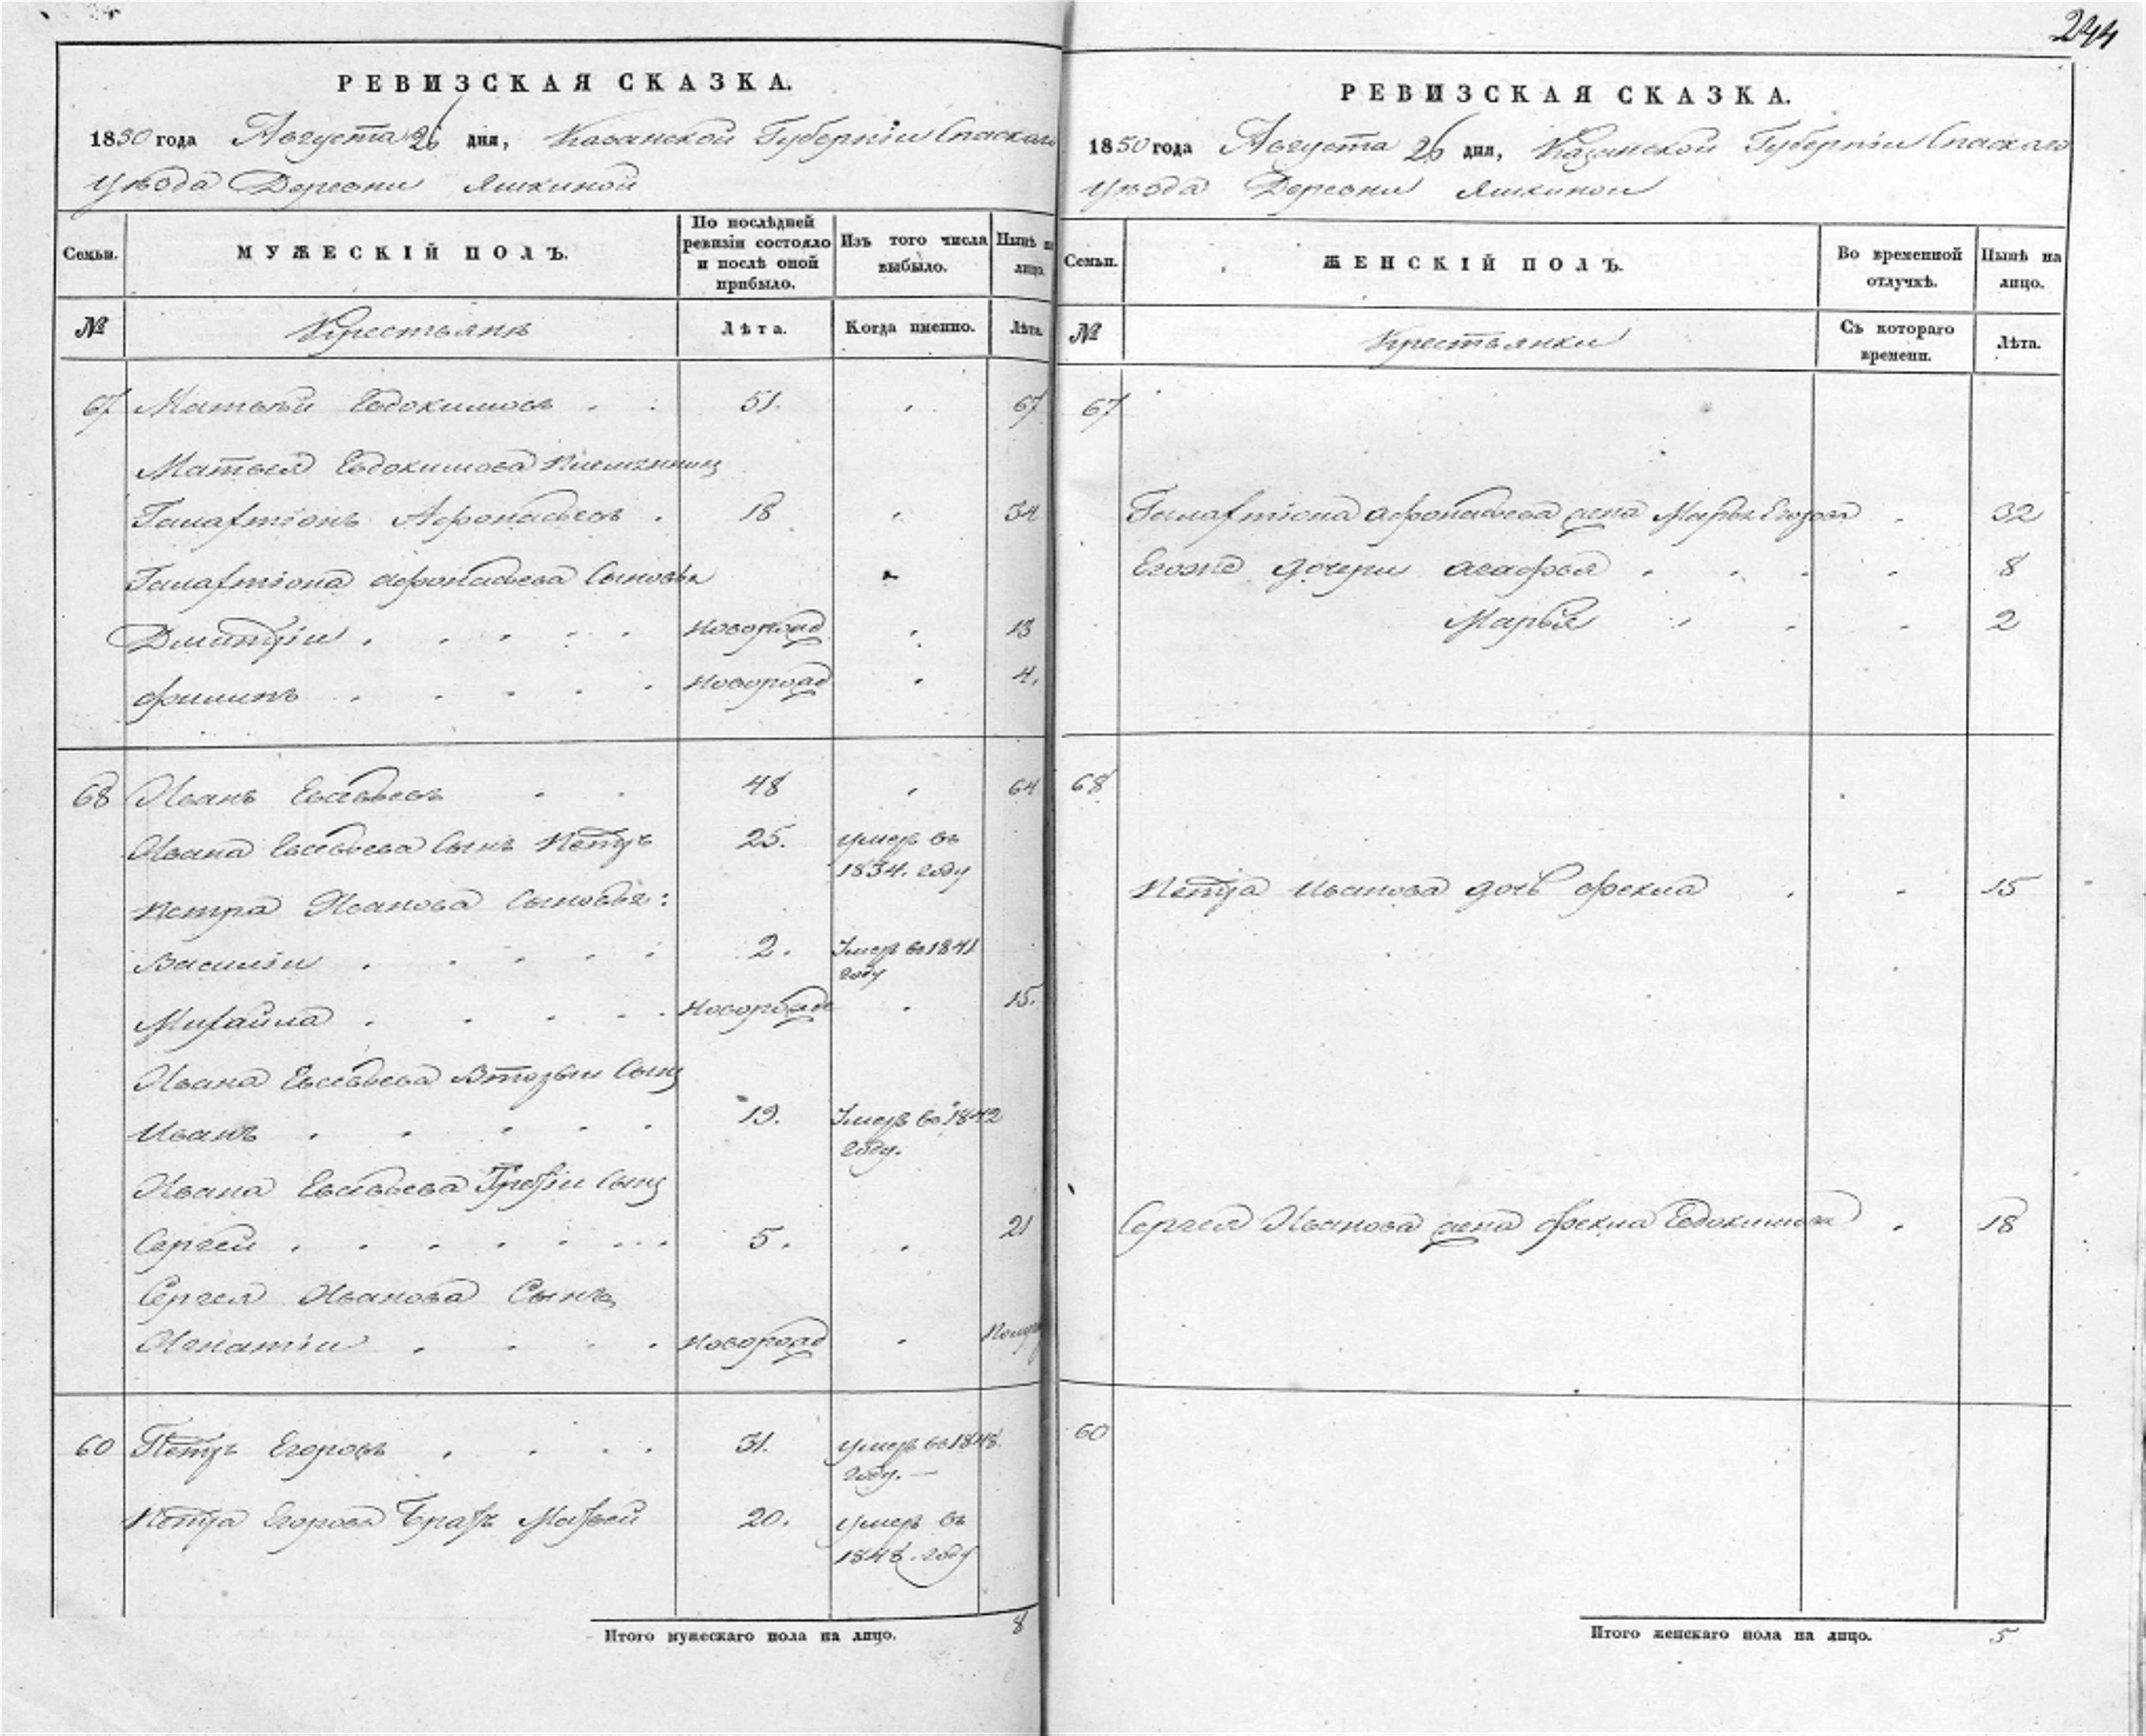 244
РЕВИЗСКАЯ СКАЗКА.
1850 года Августа 26 дня, Казанской Губерніи Спаскаго
уѣзда Деревни Яшкиной
Семьи.
МУЖЕСКІЙ ПОЛЪ.
По послѣдней ревизіи состояло и послѣ оной прибыло.
Изъ того числа выбыло.
Нынѣ на лицо.
№
Крестьянѣ
Лѣта.
Когда именно.
Лѣта.
67 Матвѣй Евдокимовъ 51. 67
Матвея Евдокимова племянникъ
Галахтіонъ Афонасьевъ 18 34
Галахтіона афонасьева Сыновья
Дмитріи Новорожд 13
филипъ Новорожд 4.
68 Иванъ Евсевьевъ 48 64
Ивана Евсевьева Сынъ Петръ 25. умеръ въ
1834. году
Петра Иванова Сыновья:
Василіи 2. Умеръ въ 1841
году
Михаила Новорожд 15.
Ивана Евсевьева Вторыи Сынъ
Иванъ 19. Умеръ въ 1842
году.
Ивана Евсевьева Третіи Сынъ
Сергеи 5. 21
Сергея Иванова Сынъ
Игнатіи Новорожд Полуго
60 Петръ Егоровъ 31. умеръ въ 1848
году. —
Петра Егорова Братъ Матвей 20. умеръ въ
1848. году
Итого мужескаго пола на лицо. 8
РЕВИЗСКАЯ СКАЗКА.
1850 года Августа 26 дня, Казанской Губерніи Спаскаго
уѣзда Деревни Яшкиной
Семьи.
ЖЕНСКІЙ ПОЛЪ.
Во временной отлучкѣ.
Нынѣ на лицо.
№
Крестьянки
Съ котораго времени.
Лѣта.
67
Галахтіона афонасьева жена Марья Егорова 32
Егоже дочери агафья 8
Марья 2
68
Петра Иванова дочь фекла 15
Сергея Иванова жена фекла Евдокимова 18
60
Итого женскаго пола на лицо. 5